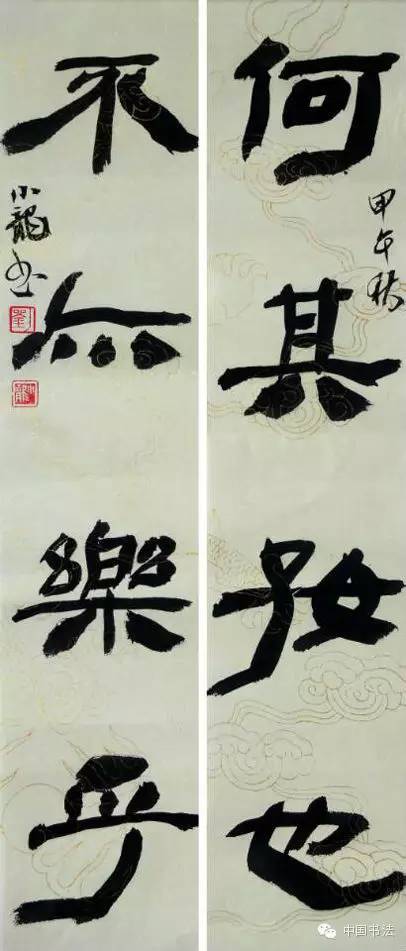 何其好也
甲午秋
不亦樂乎
小龍书
劉
中国书法